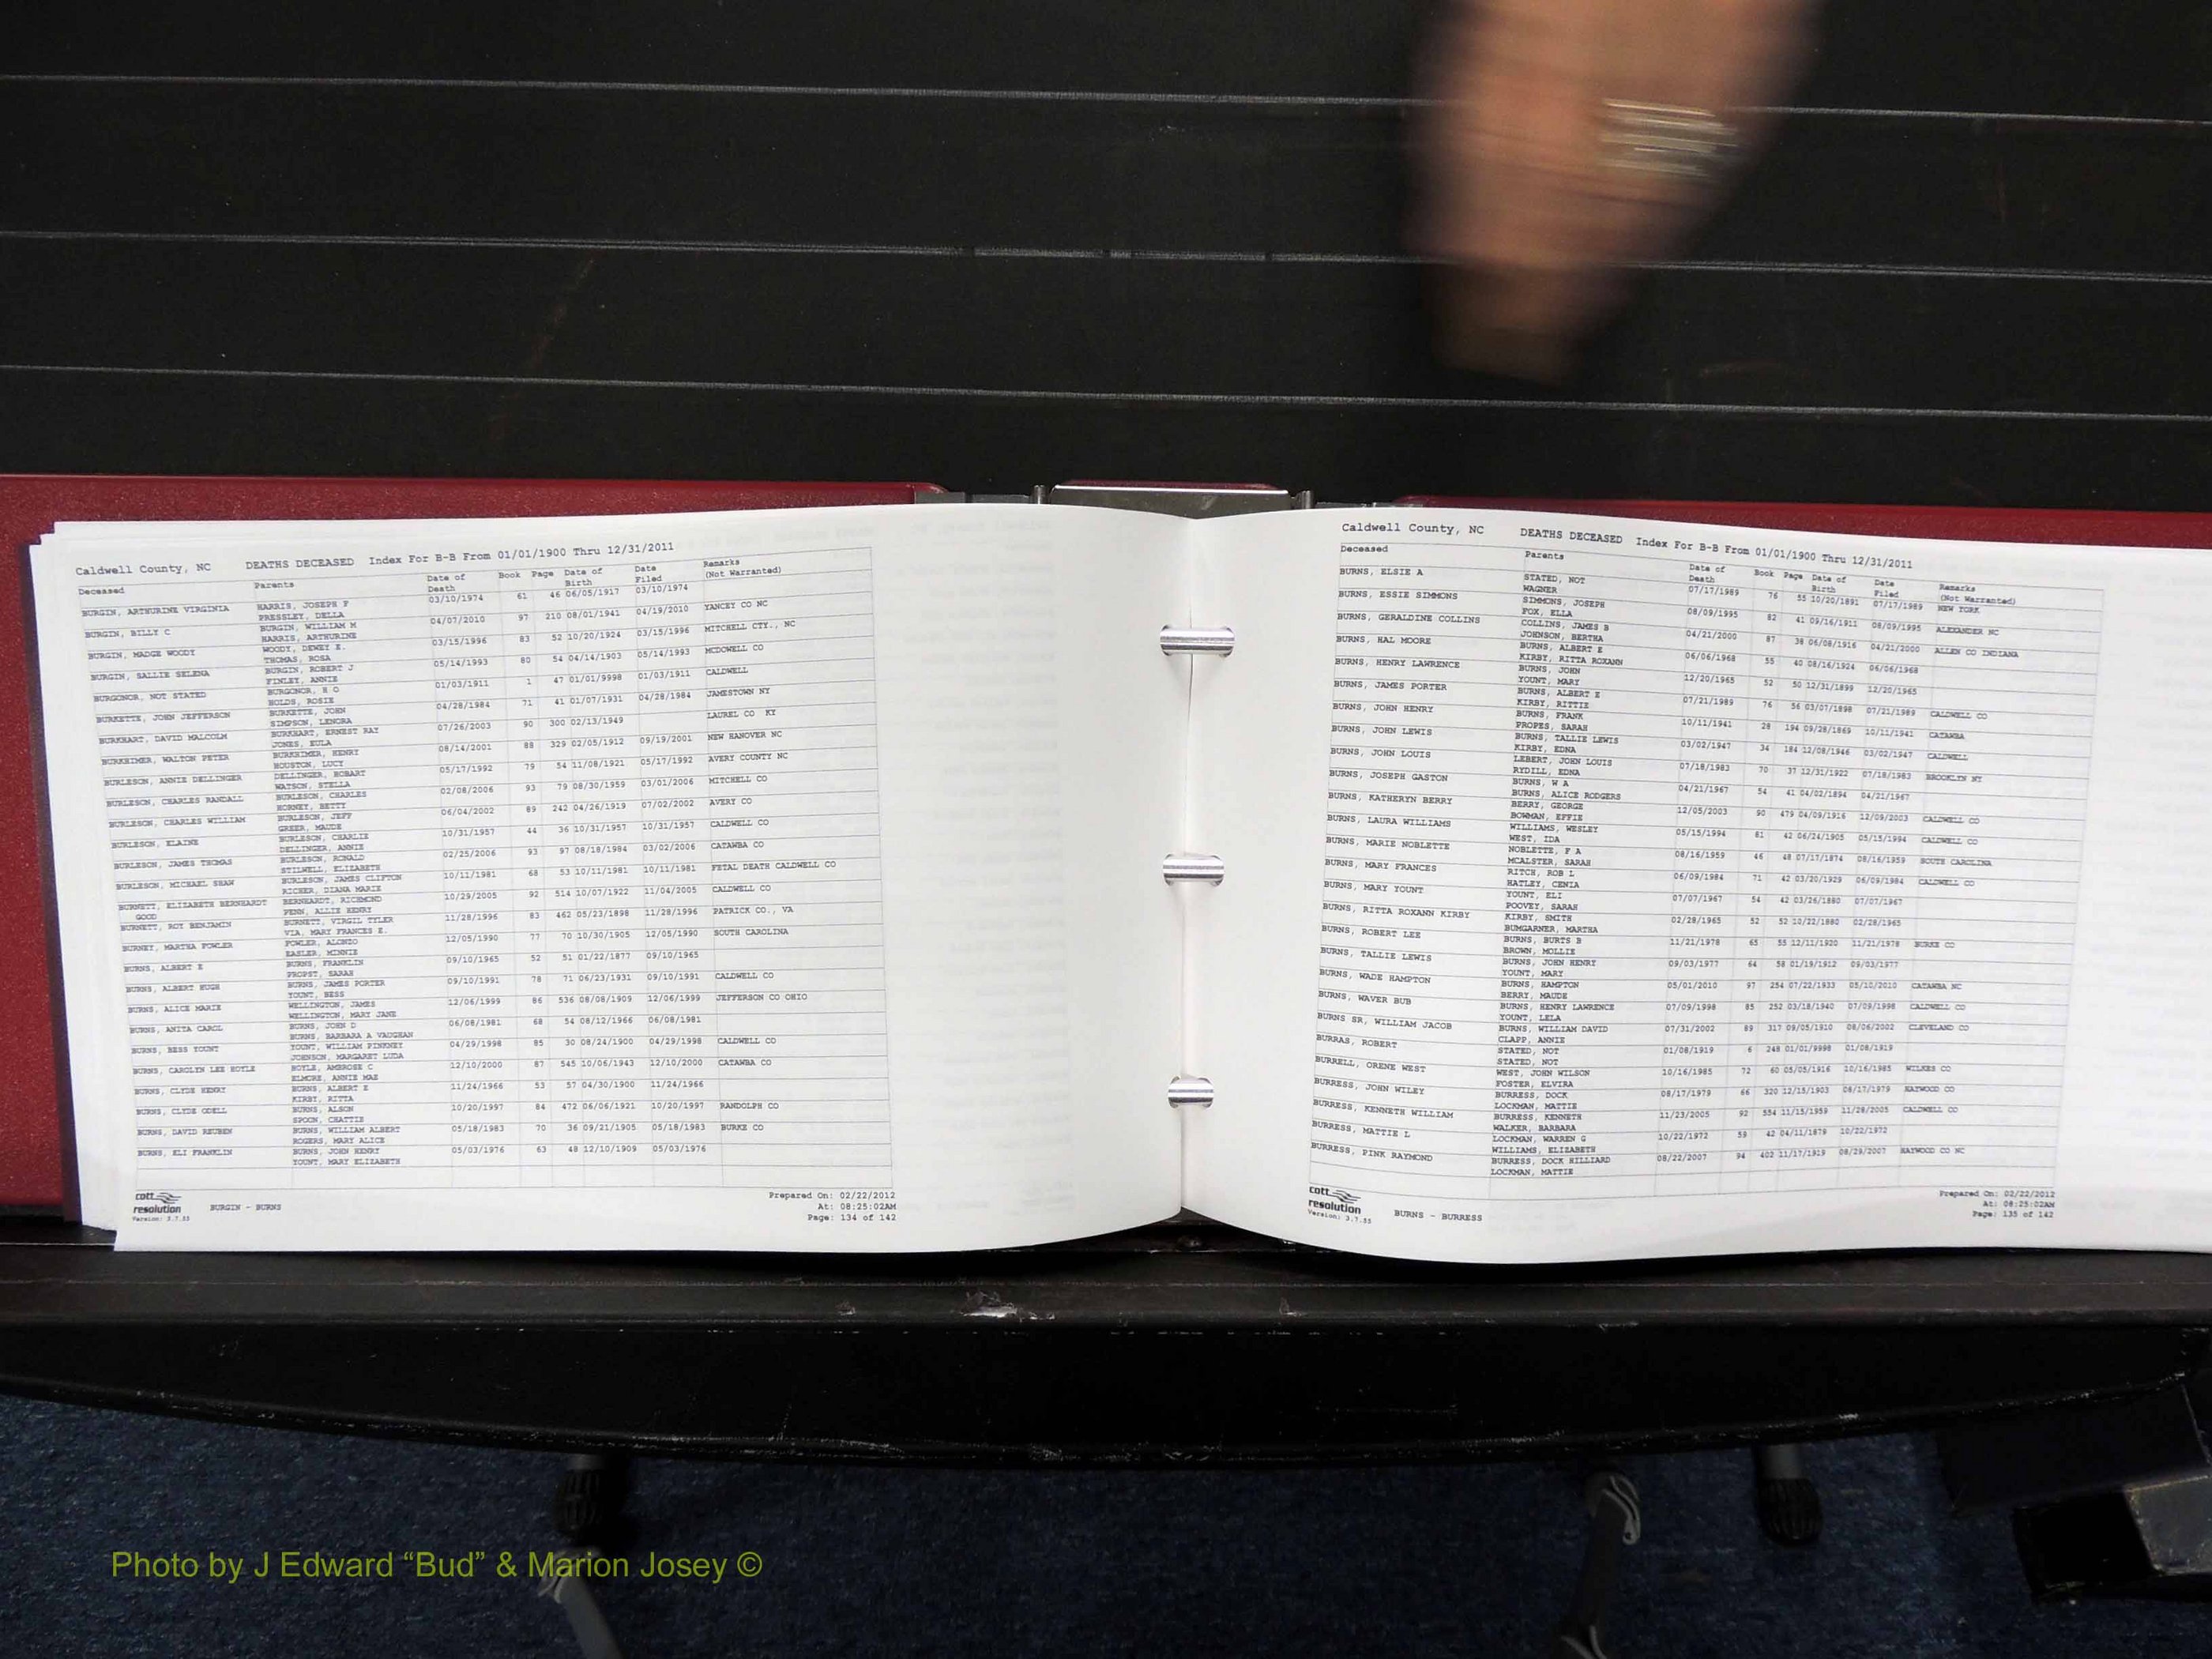 Caldwell County, NC DEATHS DECEASED Index For B-B From 01/01/1900 Thru 12/31/2011
Deceased Parents Date of Death Book Page Date of Birth Date Filed Remarks (Not Warranted)
BURGIN, ARTHURINE VIRGINIA HARRIS, JOSEPH F 03/10/1974 61 46 06/05/1917 03/10/1974
PRESSLEY, DELLA
BURGIN, BILLY C BURGIN, WILLIAM M 04/07/2010 97 210 08/01/1941 04/19/2010 YANCEY CO NC
HARRIS, ARTHURINE
BURGIN, MADGE WOODY WOODY, DEWEY E. 03/15/1996 83 52 10/20/1924 03/15/1996 MITCHELL CTY., NC
THOMAS, ROSA
BURGIN, SALLIE SELENA BURGIN, ROBERT J 05/14/1993 80 54 04/14/1903 05/14/1993 MCDOWELL CO
FINLEY, ANNIE
BURGONOR, NOT STATED BURGONOR, H O 01/03/1911 1 47 01/01/9998 01/03/1911 CALDWELL
HOLDS, ROSIE
BURKETTE, JOHN JEFFERSON BURKETTE, JOHN 04/28/1984 71 41 01/07/1931 04/28/1984 JAMESTOWN NY
SIMPSON, LENORA
BURKHART, DAVID MALCOLM BURKHART, ERNEST RAY 07/26/2003 90 300 02/13/1949 LAUREL CO KY
JONES, EULA
BURKHIMER, WALTON PETER BURKHIMER, HENRY 08/14/2001 88 329 02/05/1912 09/19/2001 NEW HANOVER NC
HOUSTON, LUCY
BURLESON, ANNIE DELLINGER DELLINGER, HOBART 05/17/1992 79 54 11/08/1921 05/17/1992 AVERY COUNTY NC
WATSON, STELLA
BURLESON, CHARLES RANDALL BURLESON, CHARLES 02/08/2006 93 79 08/30/1959 03/01/2006 MITCHELL CO
HORNEY, BETTY
BURLESON, CHARLES WILLIAM BURLESON, JEFF 06/04/2002 89 242 04/26/1919 07/02/2002 AVERY CO
GREER, MAUDE
BURLESON, ELAINE BURLESON, CHARLIE 10/31/1957 44 36 10/31/1957 10/31/1957 CALDWELL CO
DELLINGER, ANNIE
BURLESON, JAMES THOMAS BURLESON, RONALD 02/25/2006 93 97 08/18/1984 03/02/2006 CATAWBA CO
STILWELL, ELIZABETH
BURLESON, MICHAEL SHAW BURLESON, JAMES CLIFTON 10/11/1981 68 53 10/11/1981 10/11/1981 FETAL DEATH CALDWELL CO
RICHER, DIANA MARIE
BURNETT, ELIZABETH BERNHARDT BERNHARDT, RICHMOND 10/29/2005 92 514 10/07/1922 11/04/2005 CALDWELL CO
GOOD PENN, ALLIE HENRY
BURNETT, ROY BENJAMIN BURNETT, VIRGIL TYLER 11/28/1996 83 462 05/23/1898 11/28/1996 PATRICK CO., VA
VIA, MARY FRANCES E.
BURNEY, MARTHA FOWLER FOWLER, ALONZO 12/05/1990 77 70 10/30/1905 12/05/1990 SOUTH CAROLINA
EASLER, MINNIE
BURNS, ALBERT E BURNS, FRANKLIN 09/10/1965 52 51 01/22/1877 09/10/1965
PROPST, SARAH
BURNS, ALBERT HUGH BURNS, JAMES PORTER 09/10/1991 78 71 06/23/1931 09/10/1991 CALDWELL CO
YOUNT, BESS
BURNS, ALICE MARIE WELLINGTON, JAMES 12/06/1999 86 536 08/08/1909 12/06/1999 JEFFERSON CO OHIO
WELLINGTON, MARY JANE
BURNS, ANITA CAROL BURNS, JOHN D 06/08/1981 68 54 08/12/1966 06/08/1981
BURNS, BARBARA A VAUGHAN
BURNS, BESS YOUNT YOUNT, WILLIAM PINKNEY 04/29/1998 85 30 08/24/1900 04/29/1998 CALDWELL CO
JOHNSON, MARGARET LUDA
BURNS, CAROLYN LEE HOYLE HOYLE, AMBROSE C 12/10/2000 87 545 10/06/1943 12/10/2000 CATAWBA CO
ELMORE, ANNIE MAE
BURNS, CLYDE HENRY BURNS, ALBERT E 11/24/1966 53 57 04/30/1900 11/24/1966
KIRBY, RITTA
BURNS, CLYDE ODELL BURNS, ALSON 10/20/1997 84 472 06/06/1921 10/20/1997 RANDOLPH CO
SPOON, CHATTIE
BURNS, DAVID REUBEN BURNS, WILLIAM ALBERT 05/18/1983 70 36 09/21/1905 05/18/1983 BURKE CO
ROGERS, MARY ALICE
BURNS, ELI FRANKLIN BURNS, JOHN HENRY 05/03/1976 63 48 12/10/1909 05/03/1976
YOUNT, MARY ELIZABETH
cott resolution Version: 3.7.55
BURGIN - BURNS
Prepared On: 02/22/2012
At: 08:25:02AM
Page: 134 of 142
Caldwell County, NC DEATHS DECEASED Index For B-B From 01/01/1900 Thru 12/31/2011
Deceased Parents Date of Death Book Page Date of Birth Date Filed Remarks (Not Warranted)
BURNS, ELSIE A STATED, NOT 07/17/1989 76 55 10/20/1891 07/17/1989 NEW YORK
WAGNER
BURNS, ESSIE SIMMONS SIMMONS, JOSEPH 08/09/1995 82 41 09/16/1911 08/09/1995 ALEXANDER NC
FOX, ELLA
BURNS, GERALDINE COLLINS COLLINS, JAMES B 04/21/2000 87 38 06/08/1916 04/21/2000 ALLEN CO INDIANA
JOHNSON, BERTHA
BURNS, HAL MOORE BURNS, ALBERT E 06/06/1968 55 40 08/16/1924 06/06/1968
KIRBY, RITTA ROXANN
BURNS, HENRY LAWRENCE BURNS, JOHN 12/20/1965 52 50 12/31/1899 12/20/1965
YOUNT, MARY
BURNS, JAMES PORTER BURNS, ALBERT E 07/21/1989 76 56 03/07/1898 07/21/1989 CALDWELL CO
KIRBY, RITTIE
BURNS, JOHN HENRY BURNS, FRANK 10/11/1941 28 194 09/28/1869 10/11/1941 CATAWBA
PROPES, SARAH
BURNS, JOHN LEWIS BURNS, TALLIE LEWIS 03/02/1947 34 184 12/08/1946 03/02/1947 CALDWELL
KIRBY, EDNA
BURNS, JOHN LOUIS LEBERT, JOHN LOUIS 07/18/1983 70 37 12/31/1922 07/18/1983 BROOKLYN NY
RYDILL, EDNA
BURNS, JOSEPH GASTON BURNS, W A 04/21/1967 54 41 04/02/1894 04/21/1967
BURNS, ALICE RODGERS
BURNS, KATHERYN BERRY BERRY, GEORGE 12/05/2003 90 479 04/09/1916 12/09/2003 CALDWELL CO
BOWMAN, EFFIE
BURNS, LAURA WILLIAMS WILLIAMS, WESLEY 05/15/1994 81 42 06/24/1905 05/15/1994 CALDWELL CO
WEST, IDA
BURNS, MARIE NOBLETTE NOBLETTE, F A 08/16/1959 46 48 07/17/1874 08/16/1959 SOUTH CAROLINA
MCALSTER, SARAH
BURNS, MARY FRANCES RITCH, ROB L 06/09/1984 71 42 03/20/1929 06/09/1984 CALDWELL CO
HATLEY, CENIA
BURNS, MARY YOUNT YOUNT, ELI 07/07/1967 54 42 03/26/1880 07/07/1967
POOVEY, SARAH
BURNS, RITTA ROXANN KIRBY KIRBY, SMITH 02/28/1965 52 52 10/22/1880 02/28/1965
BUMGARNER, MARTHA
BURNS, ROBERT LEE BURNS, BURTS B 11/21/1978 65 55 12/11/1920 11/21/1978 BURKE CO
BROWN, MOLLIE
BURNS, TALLIE LEWIS BURNS, JOHN HENRY 09/03/1977 64 58 01/19/1912 09/03/1977
YOUNT, MARY
BURNS, WADE HAMPTON BURNS, HAMPTON 05/01/2010 97 254 07/22/1933 05/10/2010 CATAWBA NC
BERRY, MAUDE
BURNS, WAVER BUB BURNS, HENRY LAWRENCE 07/09/1998 85 252 03/18/1940 07/09/1998 CALDWELL CO
YOUNT, LELA
BURNS SR, WILLIAM JACOB BURNS, WILLIAM DAVID 07/31/2002 89 317 09/05/1910 08/06/2002 CLEVELAND CO
CLAPP, ANNIE
BURRAS, ROBERT STATED, NOT 01/08/1919 6 248 01/01/9998 01/08/1919
STATED, NOT
BURRELL, ORENE WEST WEST, JOHN WILSON 10/16/1985 72 60 05/05/1916 10/16/1985 WILKES CO
FOSTER, ELVIRA
BURRESS, JOHN WILEY BURRESS, DOCK 08/17/1979 66 320 12/15/1903 08/17/1979 HAYWOOD CO
LOCKMAN, MATTIE
BURRESS, KENNETH WILLIAM BURRESS, KENNETH 11/23/2005 92 554 11/15/1959 11/28/2005 CALDWELL CO
WALKER, BARBARA
BURRESS, MATTIE L LOCKMAN, WARREN G 10/22/1972 59 42 04/11/1879 10/22/1972
WILLIAMS, ELIZABETH
BURRESS, PINK RAYMOND BURRESS, DOCK HILLIARD 08/22/2007 94 402 11/17/1919 08/29/2007 HAYWOOD CO NC
LOCKMAN, MATTIE
cott resolution Version: 3.7.55
BURNS - BURRESS
Prepared On: 02/22/2012
At: 08:25:02AM
Page: 135 of 142
Photo by J Edward “Bud” & Marion Josey ©